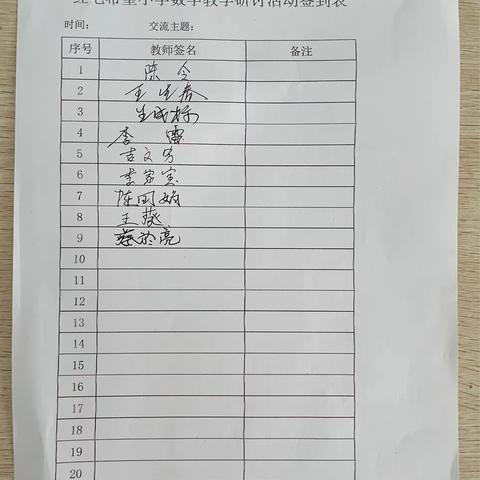 红毛希望小学数学教学研讨活动签到表
时间： 交流主题：
序号 教师签名 备注
1 陈令
2 王生春
3
4 李雷
5 吉文芳
6 李家宝
7 陈国娟
8 王葵
9 蔡於亮
10
11
12
13
14
15
16
17
18
19
20